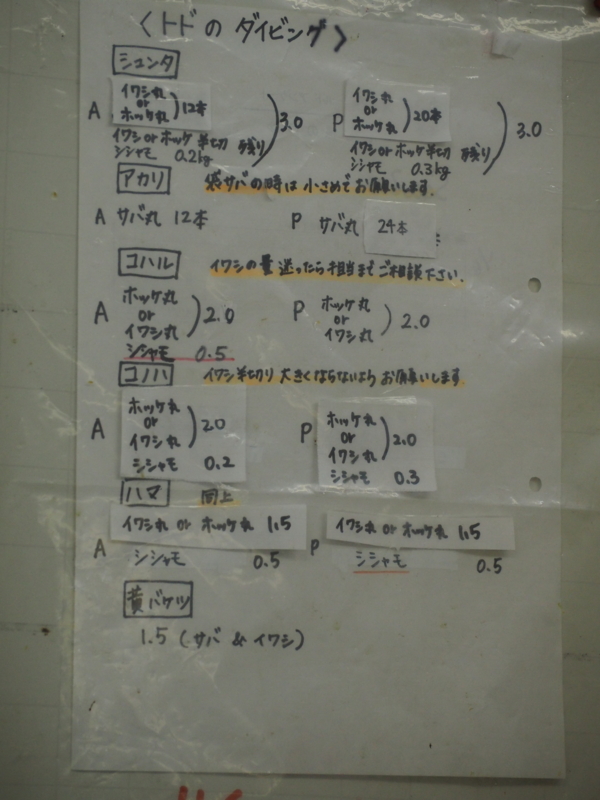 〈トドの ダイビング〉
シュンタ
A イワシ丸 or ホッケ丸 ) 12本
イワシorホッケ 半切 残り
シシャモ 0.2kg
3.0
P イワシ丸 or ホッケ丸 ) 20本
イワシorホッケ半切 残り
シシャモ 0.3kg
3.0
アカリ サバの時は 小さめで お願いします。
A サバ丸 12本 P サバ丸 24本
コハル イワシの量 迷ったら担当まで ご相談下さい。
A ホッケ丸 or イワシ丸 ) 2.0
シシャモ 0.5
P ホッケ丸 or イワシ丸 ) 2.0
コノハ イワシ半切り 大きくならないよう お願いします
A ホッケ丸 or イワシ丸 ) 2.0
シシャモ 0.2
P ホッケ丸 or イワシ丸 ) 2.0
シシャモ 0.3
ハマ 同上
A イワシ丸 or ホッケ丸 1.5
シシャモ 0.5
P イワシ丸 or ホッケ丸 1.5
シシャモ 0.5
黄バケツ
1.5 (サバ & イワシ)